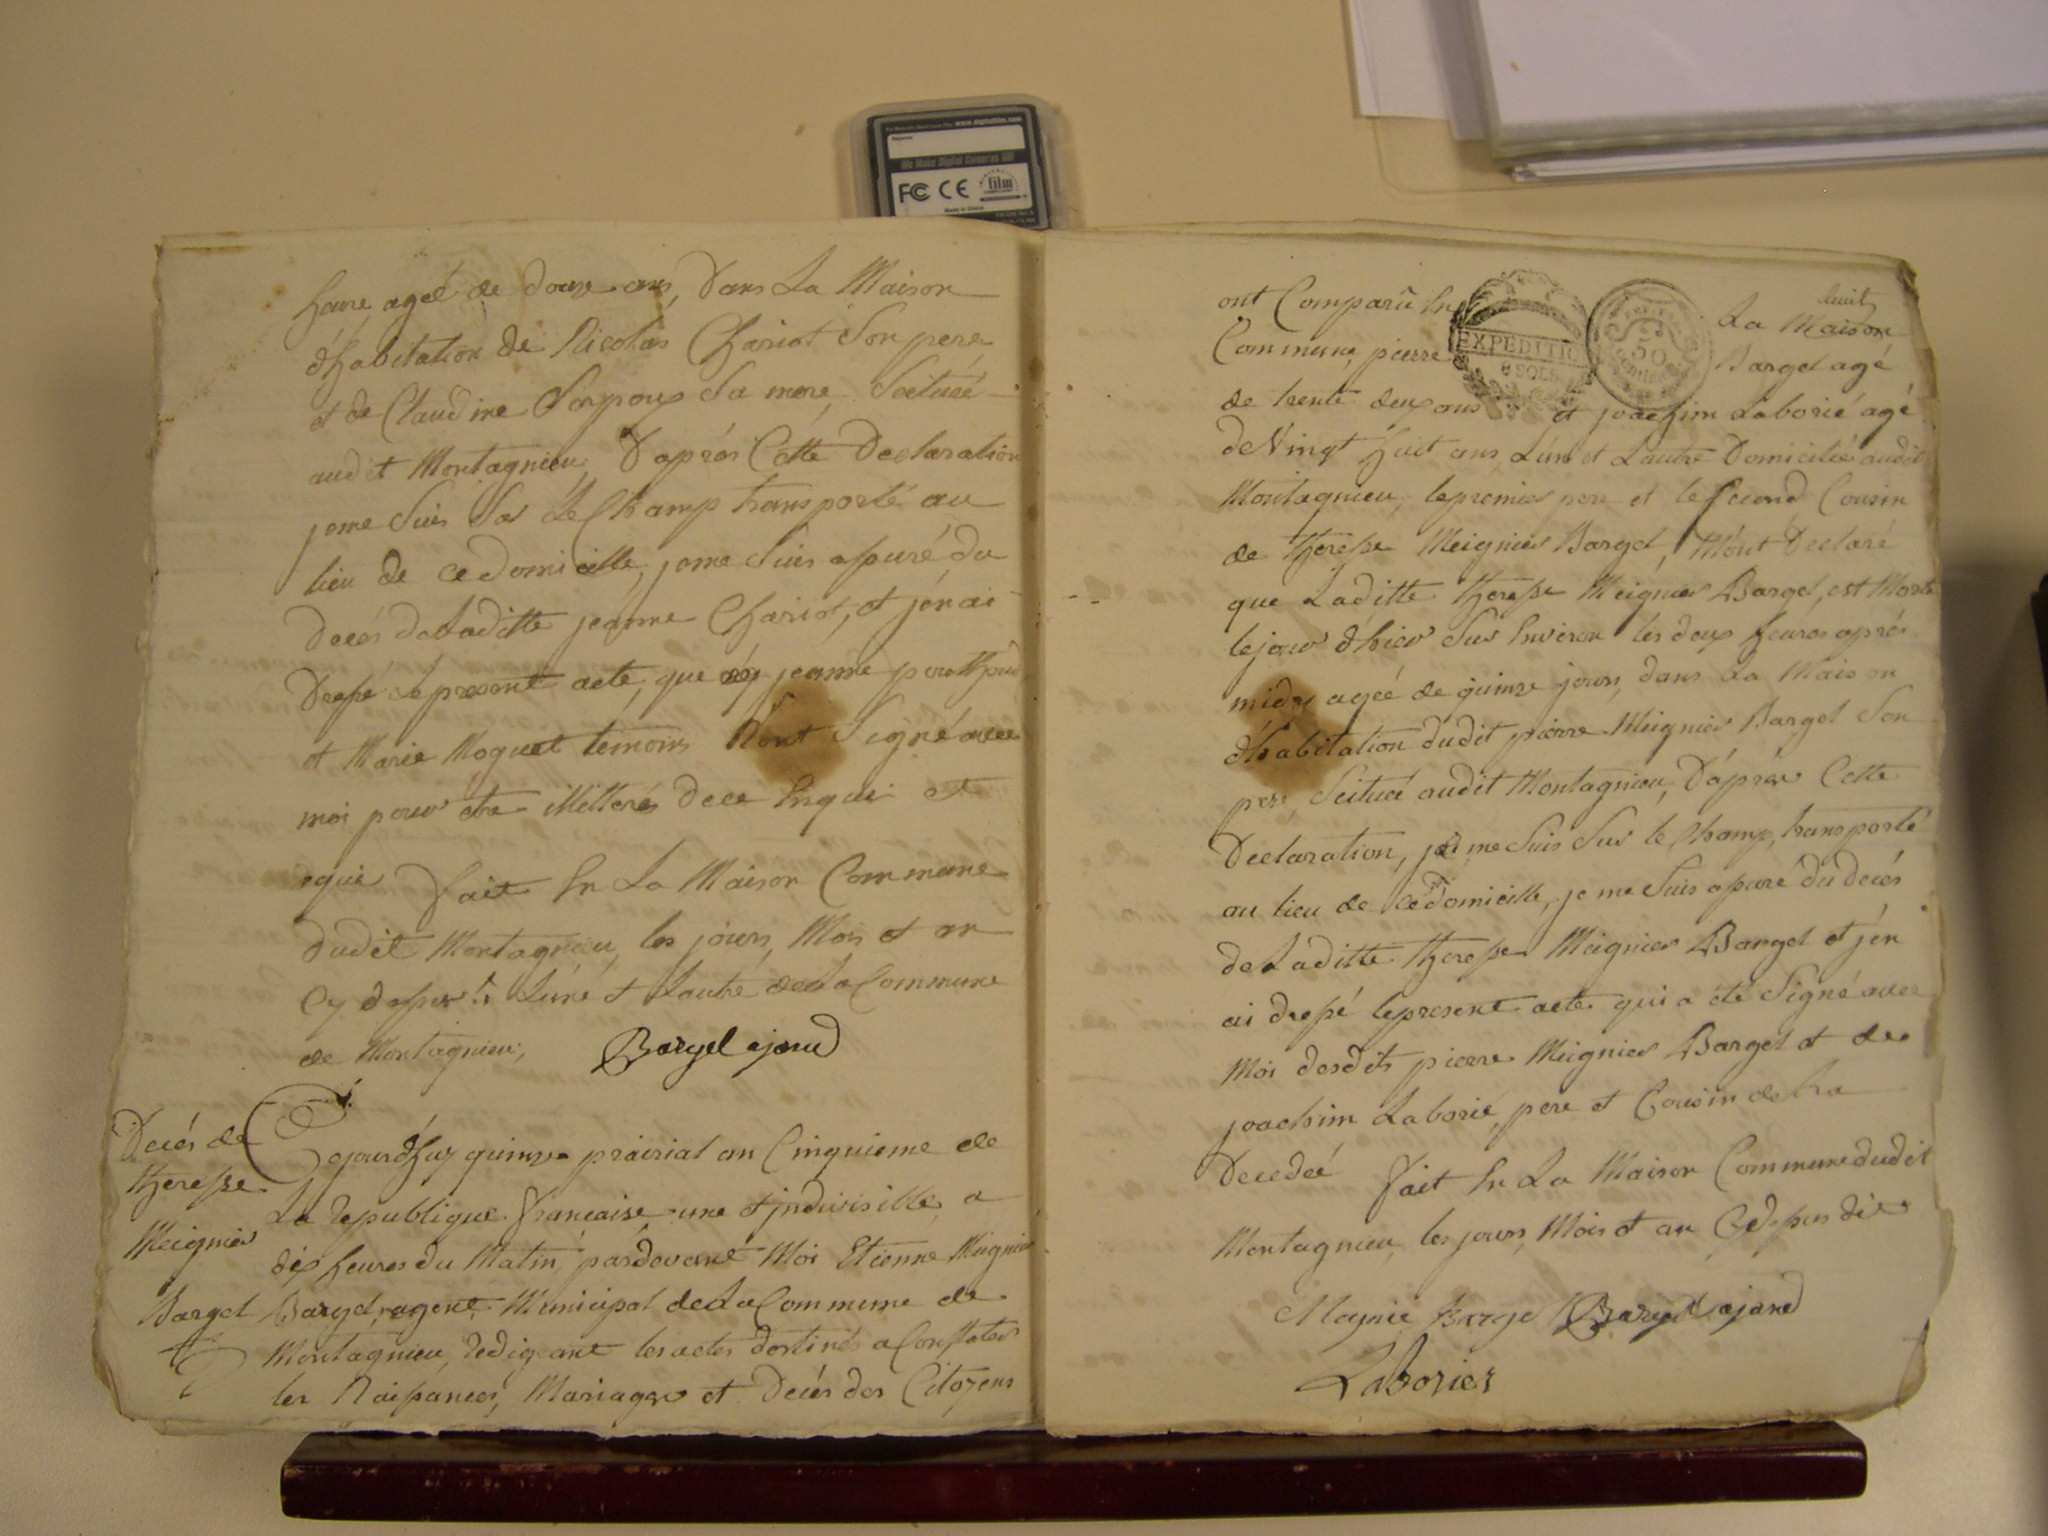 www.digitalfilm.com
We Make Digital Cameras
FC CE
film
Made in China
heure agée de douze ans, Dans La Maison
d'habitation de Nicolas Chariot Son pere
et de Claudine Sa mere, Scituée
audit Montagnieu, D'aprés Cette Declaration
jeme Suis Sur Le Champ transporté au
lieu de ce domicille, jeme Suis assuré du
Decés de Laditte jeanne Chariot, et jen ai
Dressé le present acte, que jeanne
et Marie Moguet temoins N'ont Signé avec
moi pour etre illitterés de ce Enquis et
requis fait En La Maison Commune
dudit Montagnieu, les jours, Mois et an
Cy dessus L'une et L'autre de La Commune
de Montagnieu, Bargel ajand
Decés de
theresse
Meignier
Bargel
jourdhuy quinze prairial an Cinquieme de
La republique francaise une et jndivisille, a
dix heures du Matin, pardevant Moi Etienne Meignier
Bargel, agent Municipal de La Commune de
Montagnieu, redigeant les actes destinés a Constater
les Naissances, Mariages et Decés des Citoyens
huit
ont Comparû En La Maison
EXPEDITIO
8 SOLS
50
Commune, pierre Bargel agé
de trente deux ans et joachim Laborié agé
de Vingt huit ans, L'un et L'autre Domicilié audit
Montagnieu, le premier pere et le second Cousin
de theresse Meignier Bargel, M'ont Declaré
que Laditte theresse Meignier Bargel, est Morte
le jour d'hier Sur Environ les deux heures aprés
midy agée de quinze jours, dans La Maison
d'habitation dudit pierre Meignier Bargel Son
pere, Scitué audit Montagnieu, D'aprés Cette
Declaration, je me Suis Sur le Champ, transporté
au lieu de ce domicille, je me Suis assuré du decés
de Laditte therese Meignier Bargel et j'en
ai dressé le present acte qui a été Signé avec
Moi desdits pierre Meignier Bargel et de
joachim Laborié, pere et Cousin de La
Decedée fait En La Maison Commune dudit
Montagnieu, les jours, Mois et an Cy dessus dit
Maynie Barge Bargel ajand
Laborier